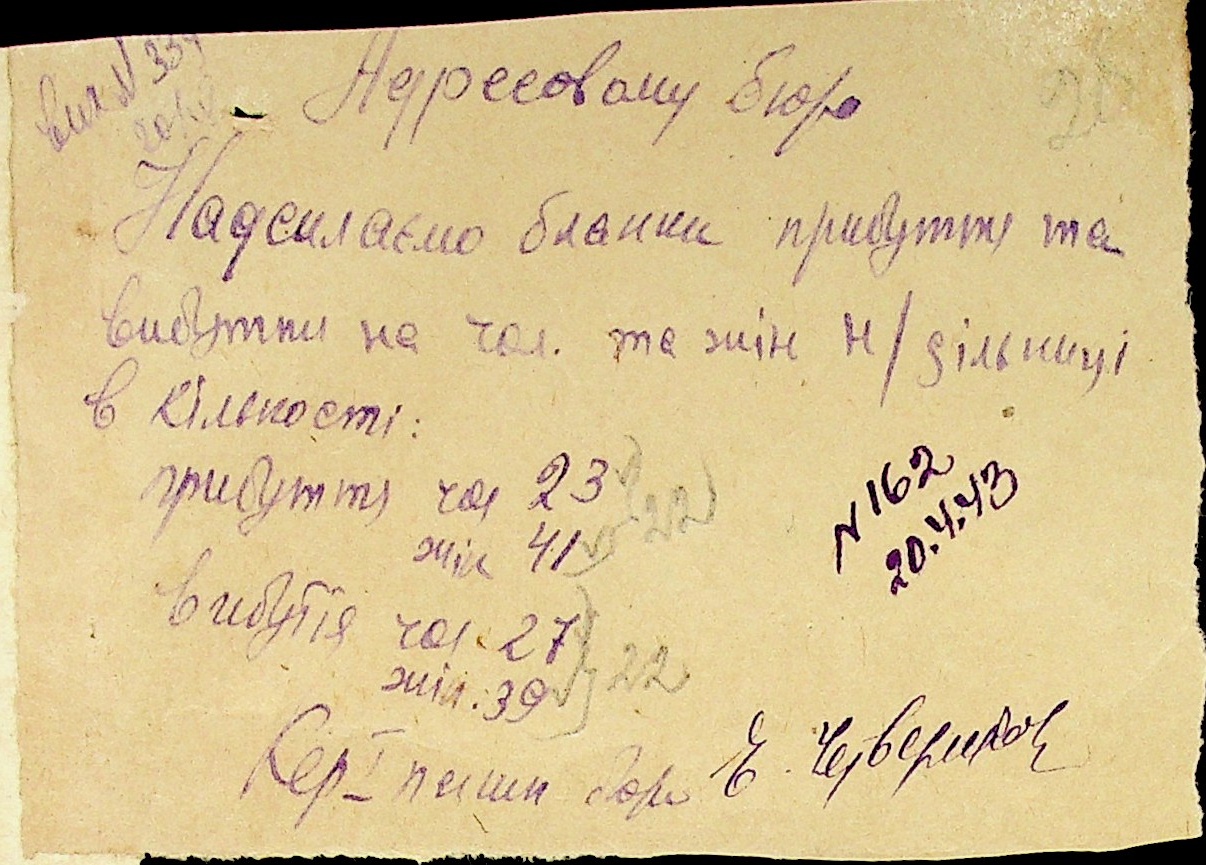 вих N 339
Адресовому бюро
Надсилаємо бланки прибуття та
вибуття на чол. та жін н/дільниці
в кількості:
прибуття чол 23
жін 41
22
вибуття чол 27
жін. 39
22
N 162
20.4.43
Кер I пашп бюро Е. Четвериков